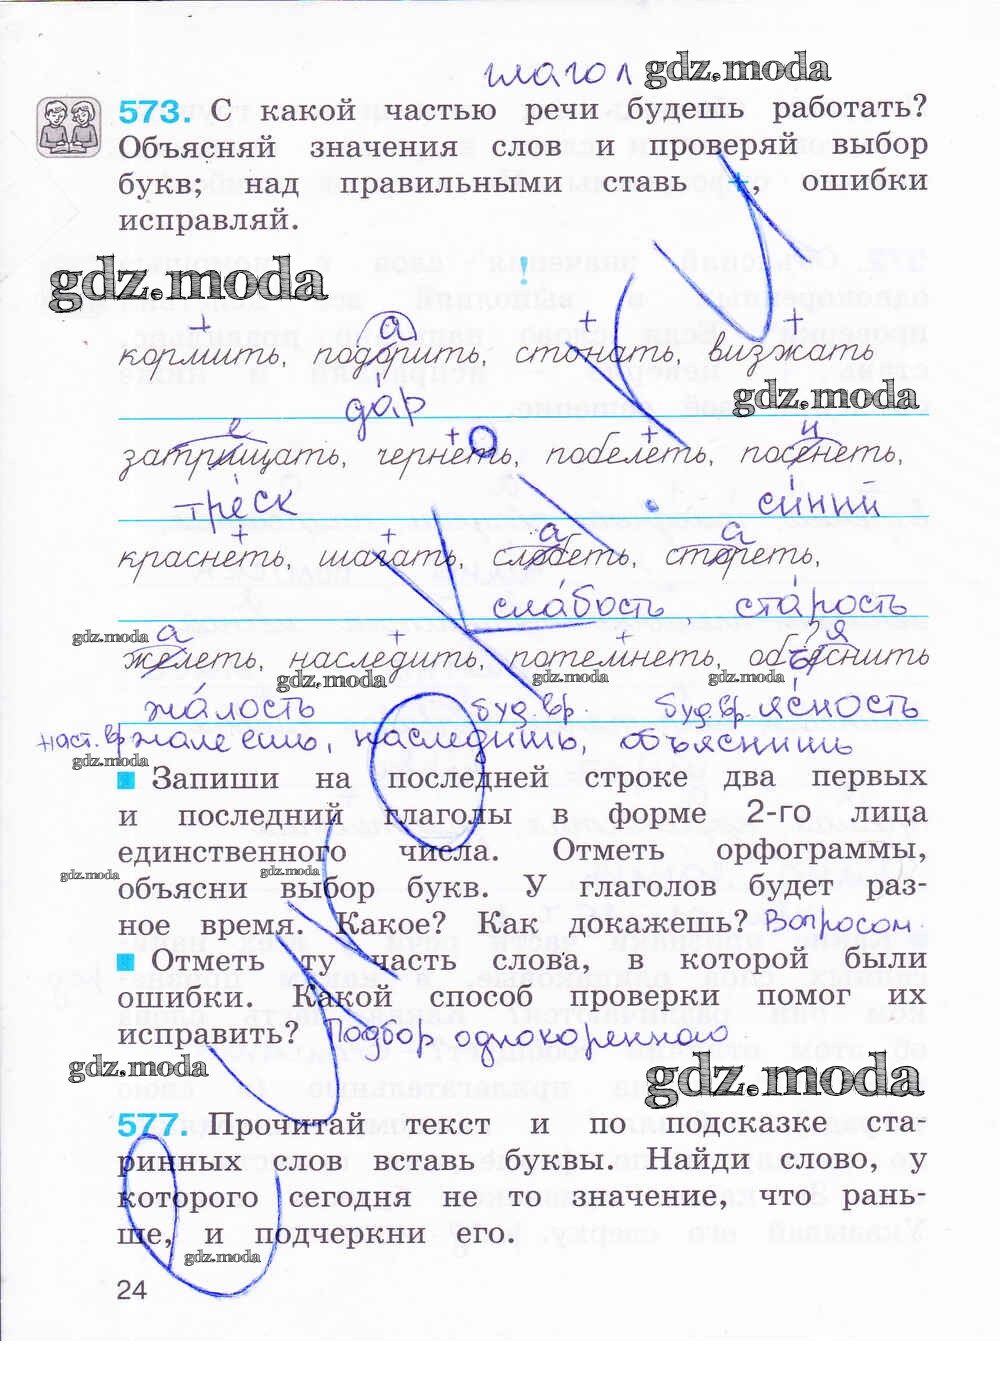 глагол gdz.moda
573. О какой частью речи будешь работать?
Объясняй значения слов и проверяй выбор
букв; над правильными ставь +, ошибки
исправляй.
gdz.moda !
+ а + +
кормить, подорить, стонать, визжать
gdz.moda
дар
е + + и
затрищать, чернеть, побелеть, посенеть,
треск синий
+ + а а
краснеть, шагать, слобеть, стореть,
слабость, старость
gdz.moda а + + ? я
желеть, наследить, потемнеть, объеснить
gdz.moda gdz.moda gdz.moda
жалость буд. вр. буд. вр. ясность
наст. вр жалеешь, наследишь, объяснишь
gdz.moda
Запиши на последней строке два первых
и последний глаголы в форме 2-го лица
единственного числа. Отметь орфограммы,
gdz.moda gdz.moda
объясни выбор букв. У глаголов будет раз-
ное время. Какое? Как докажешь? Вопросом
Отметь ту часть слова, в которой были
ошибки. Какой способ проверки помог их
исправить? Подбор однокоренного
gdz.moda gdz.moda
577. Прочитай текст и по подсказке ста-
ринных слов вставь буквы. Найди слово, у
которого сегодня не то значение, что рань-
ше, и подчеркни его.
gdz.moda
24